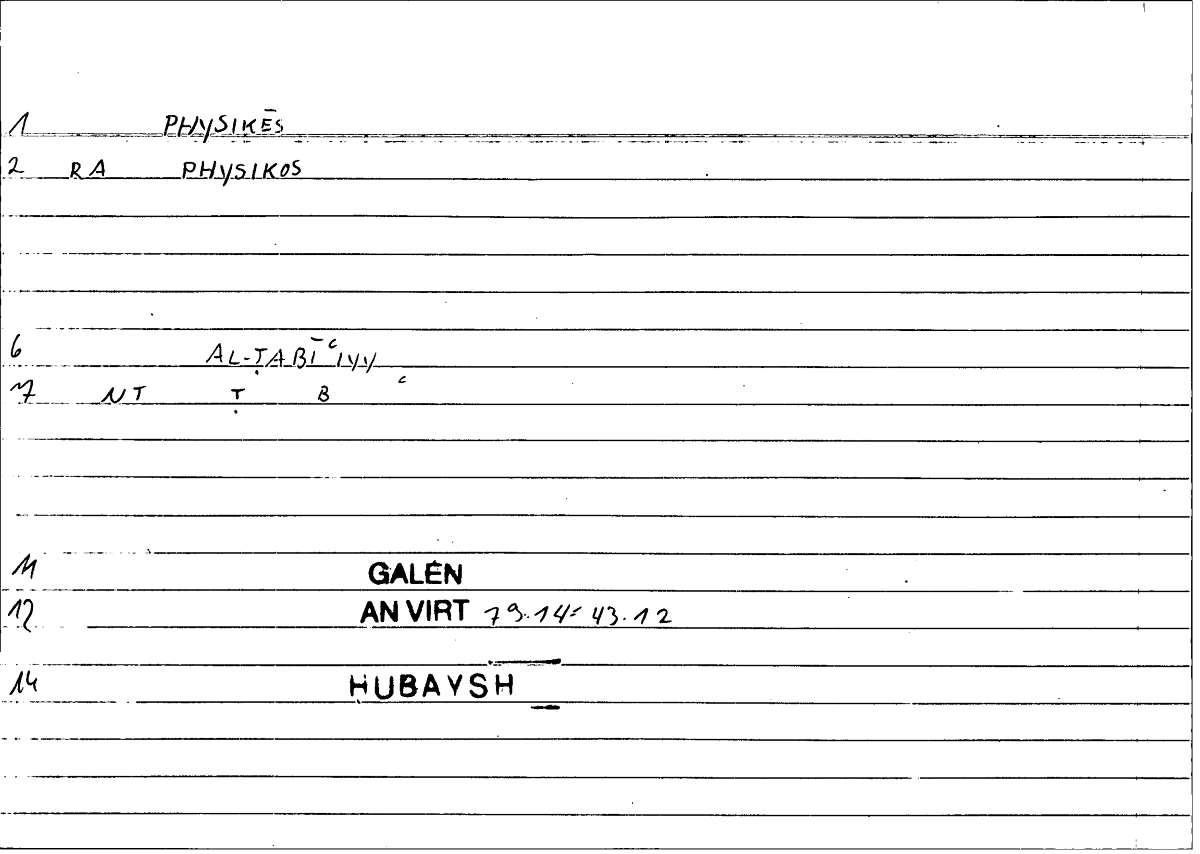 1 PHYSIKĒS
2 RA PHYSIKOS
6 AL-ṬABĪʿIYY
7 NT Ṭ B ʿ
11 GALEN
12 AN VIRT 79.14 = 43.12
14 HUBAYSH